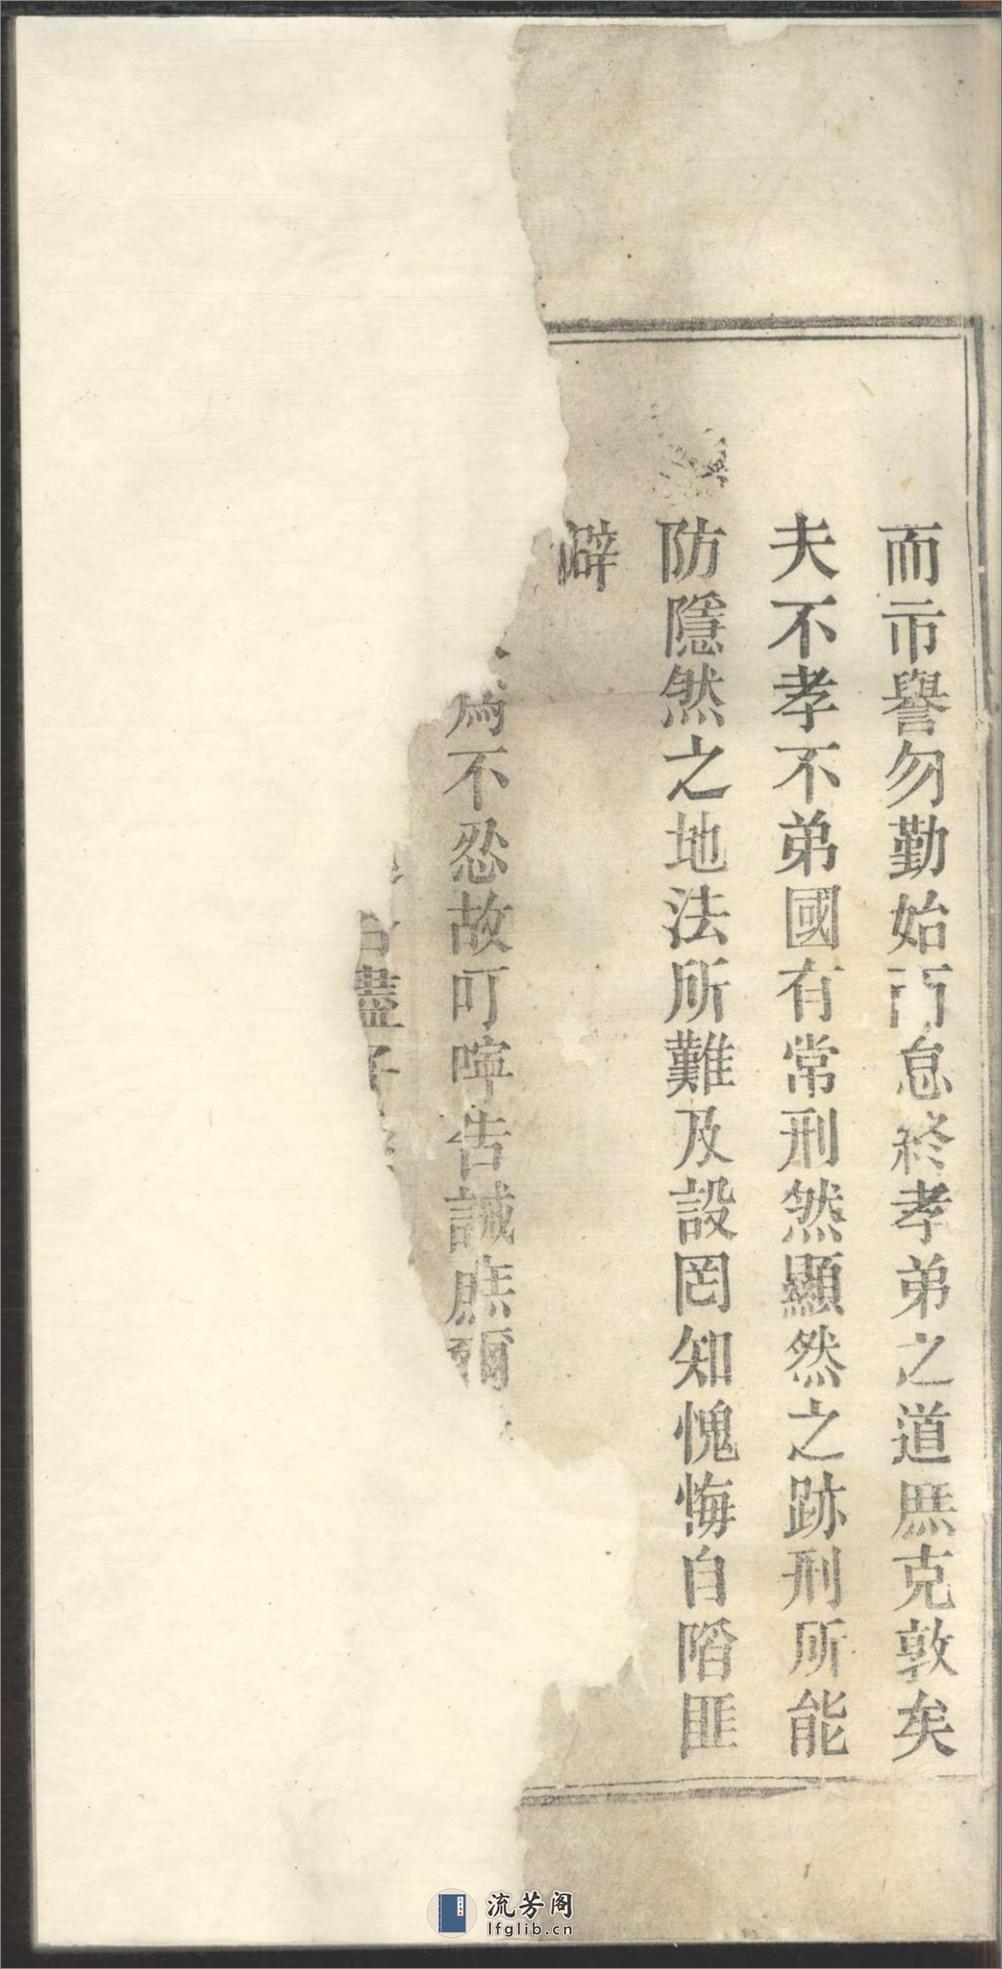 而市譽勿勤始而怠終孝弟之道庶克敦矣
夫不孝不弟國有常刑然顯然之跡刑所能
防隱然之地法所難及設罔知愧悔自陷匪
僻
為不忍故叮嚀告誡庶爾
盡子
流芳阁
lfglib.cn